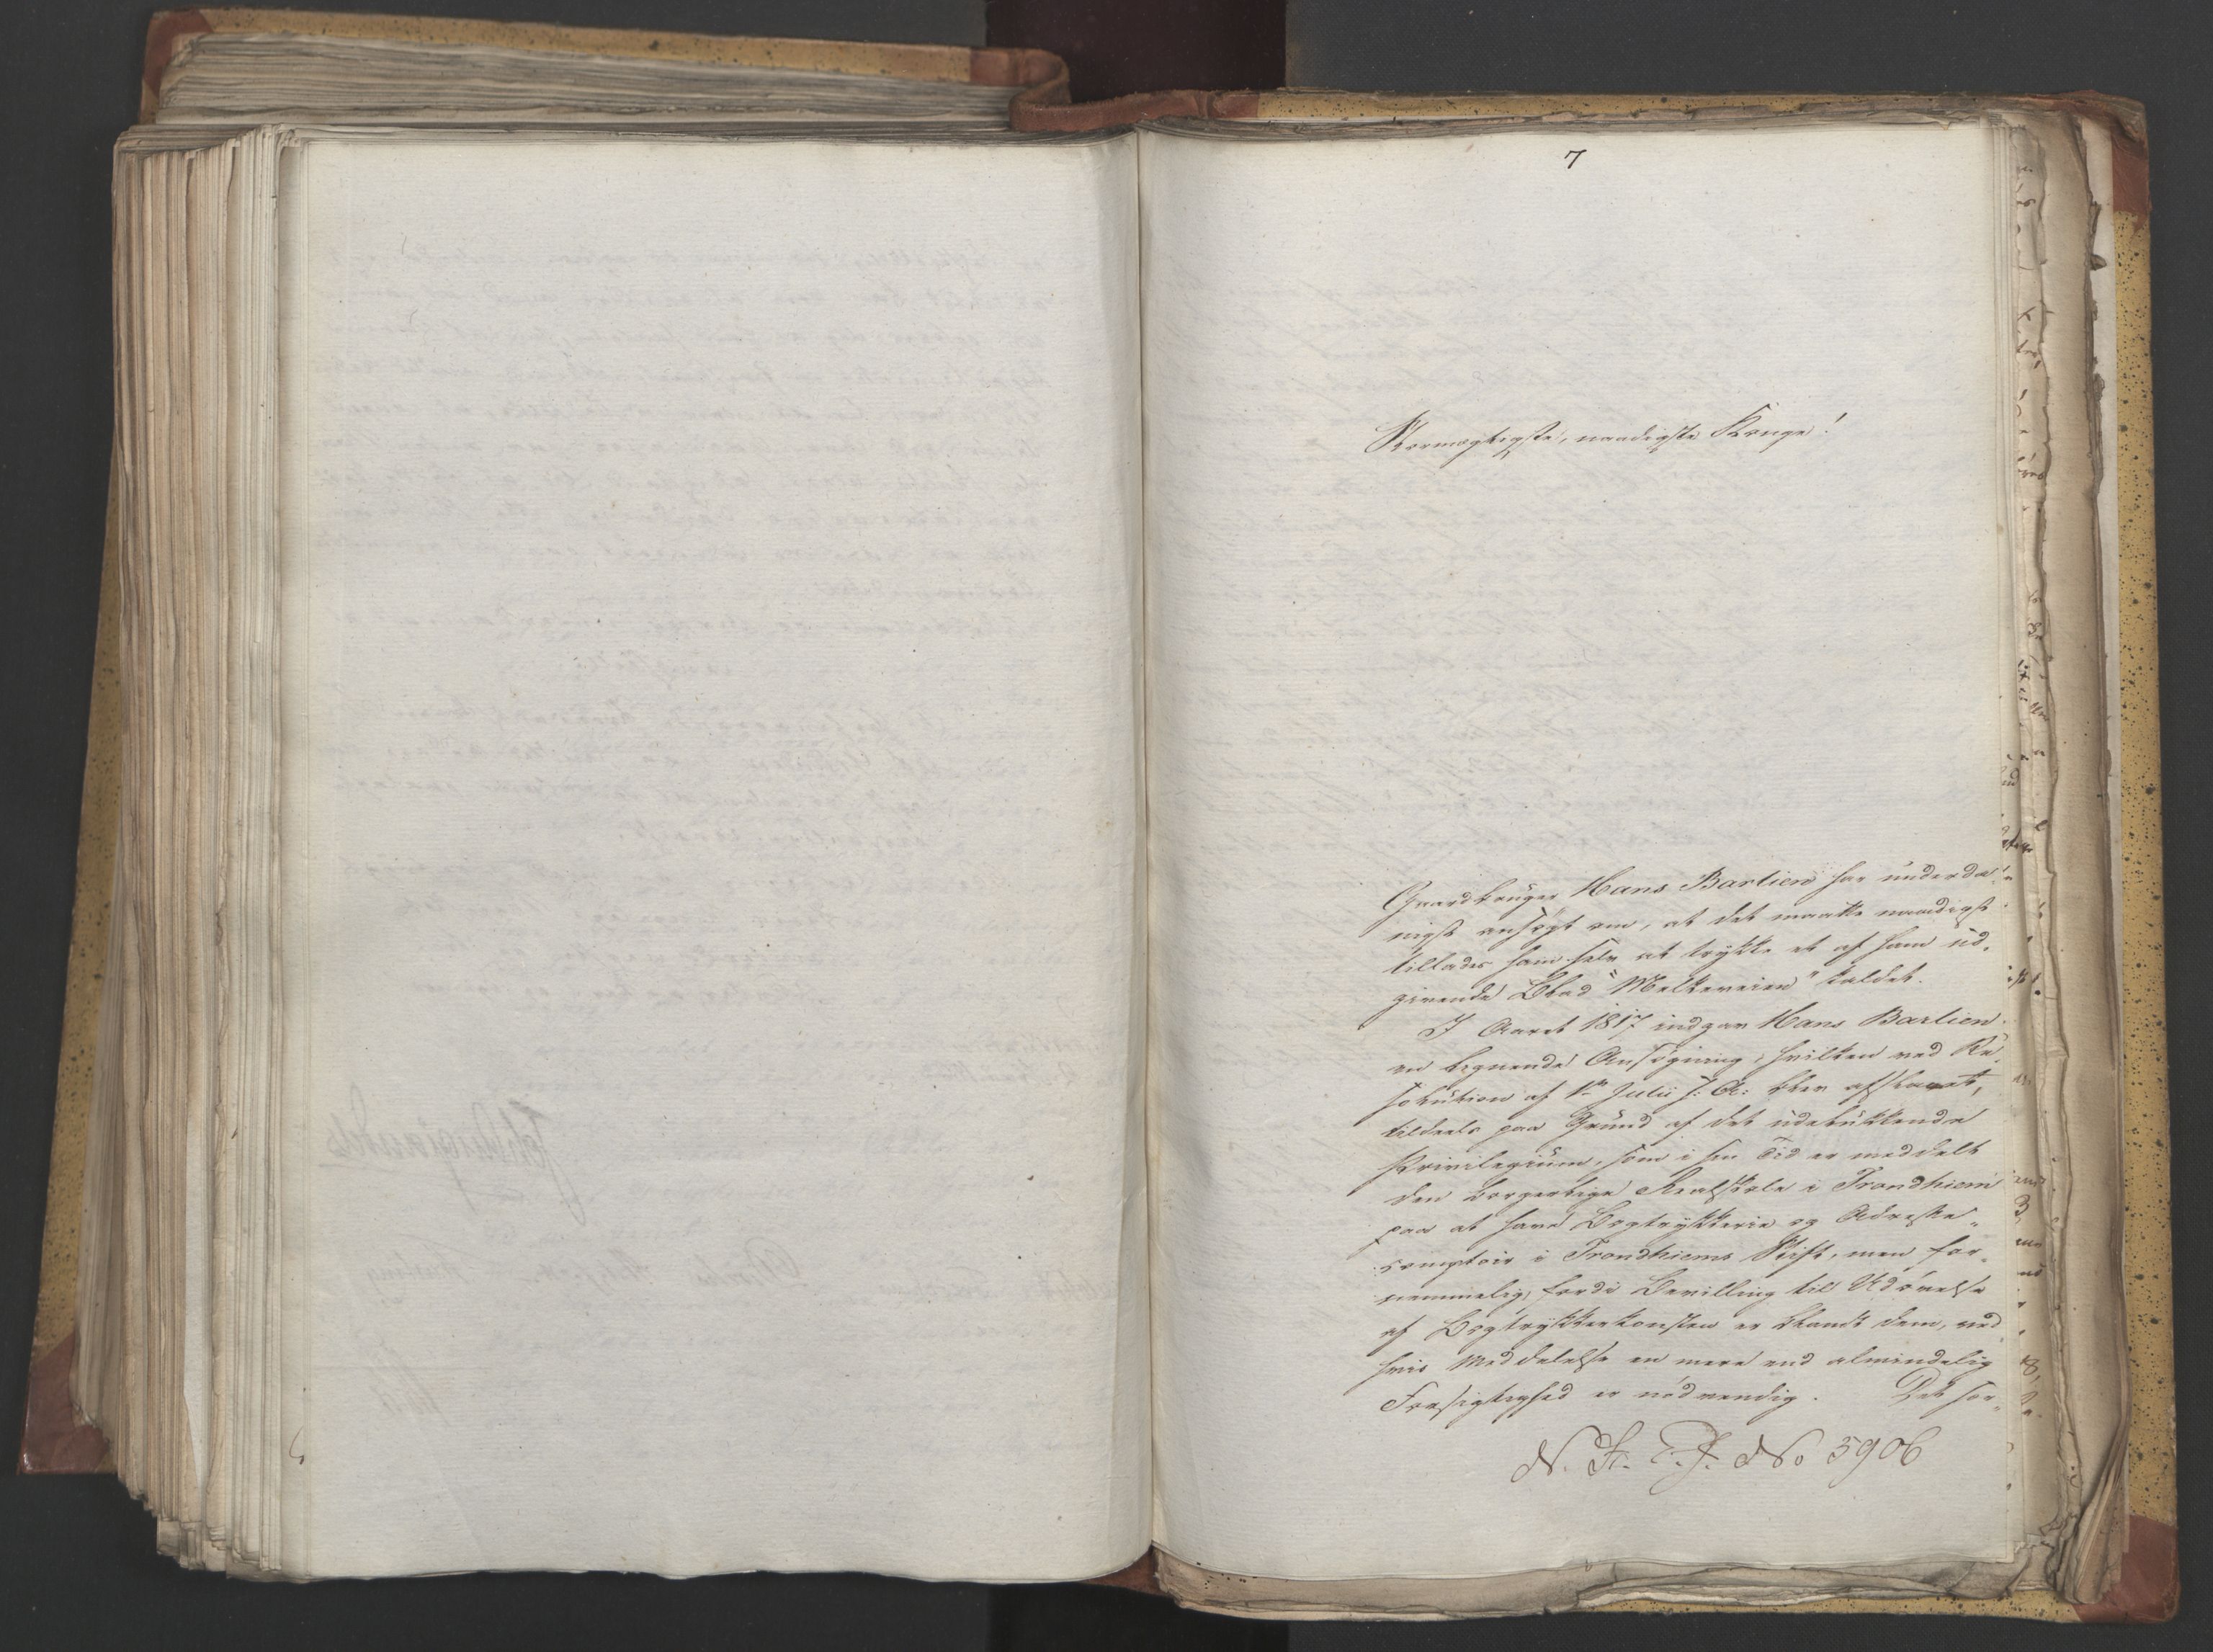 7
Stormægtigste, naadigste Konge!
Gaardbruger Hans Barlien har underda-
nigst ansøgt om, at det maatte naadigst
tillades ham selv at trykke et af ham ud-
givende Blad "Melkeveien" kaldet.
I Aaret 1817 indgav Hans Barlien
en lignende Ansøgning, hvilken ved Re-
solution af 1ste Julii s: A: blev afslaaet,
tildeels paa Grund af det udelukkende
Privilegium, som i sin Tid er meddelt
den borgerlige Realskole i Trondhiem
paa at have Bogtrykkerie og Adresse-
comptoir i Trondhiems Stift, men for-
nemmelig, fordi Bevilling til Udøvelse
af Bogtrykkerkonsten er blandt dem, ved
hvis Meddelelse en mere end almindelig
Forsigtighed er nødvendig. Det for-
No 5906